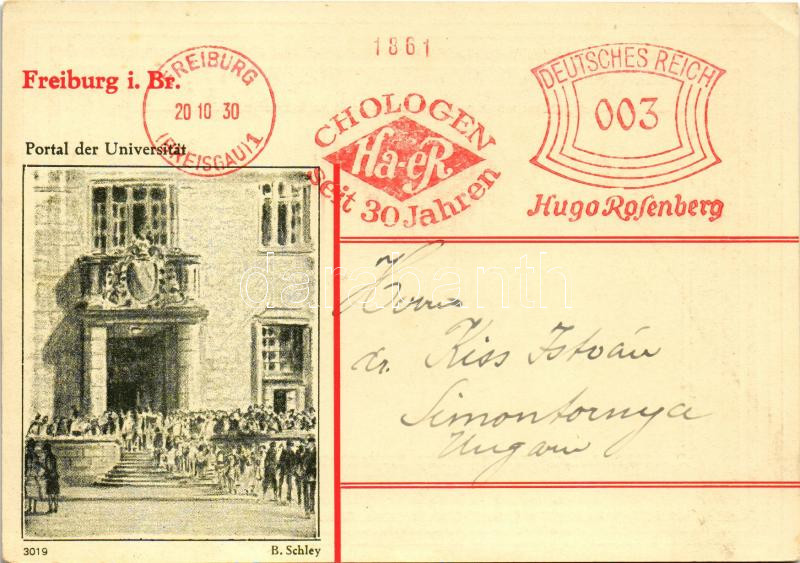 1861
Freiburg i. Br.
FREIBURG
20 10 30
(BREISGAU) 1
CHOLOGEN
Ha-eR
seit 30 Jahren
DEUTSCHES REICH
003
Hugo Rosenberg
Portal der Universität
Herrn
dr. Kiss István
Simontornya
Ungarn
3019
B. Schley
darabanth